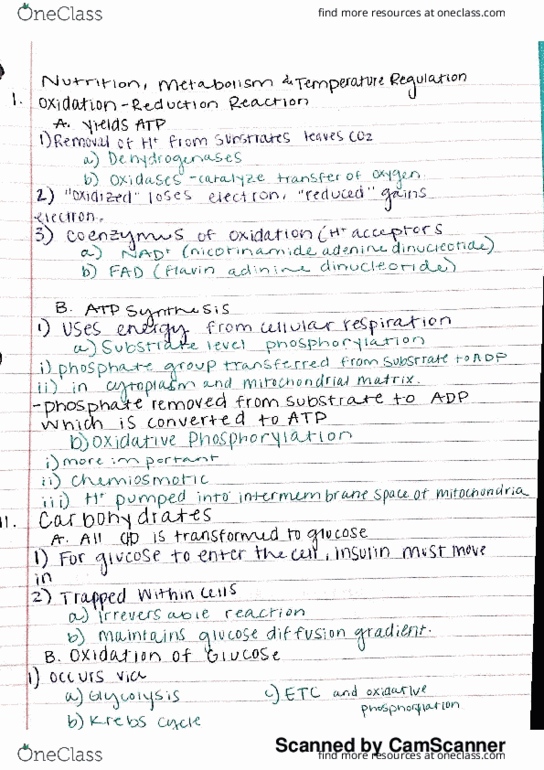 OneClass
find more resources at oneclass.com
Nutrition, Metabolism & Temperature Regulation
1. Oxidation-Reduction Reaction
A. Yields ATP
1) Removal of H+ from substrates leaves CO2
a) Dehydrogenases
b) Oxidases - catalyze transfer of oxygen.
2) "oxidized" loses electron, "reduced" gains
electron.
3) coenzymes of oxidation (H+ acceptors
a) NAD+ (nicotinamide adenine dinucleotide)
b) FAD (flavin adinine dinucleotide)
B. ATP Synthesis
1) Uses energy from cellular respiration
a) Substrate level phosphorylation
i) phosphate group transferred from substrate to ADP
ii) in cytoplasm and mitochondrial matrix.
- phosphate removed from substrate to ADP
which is converted to ATP
b) Oxidative Phosphorylation
i) more important
ii) chemiosmotic
iii) H+ pumped into intermembrane space of mitochondria
11. Carbohydrates
A. All CHD is transformed to glucose
1) For glucose to enter the cell, insulin must move
in
2) Trapped within cells
a) irreversable reaction
b) maintains glucose diffusion gradient.
B. Oxidation of Glucose
1) occurs via
a) Glycolysis
c) ETC and oxidative
phosphorylation
b) Krebs cycle
Scanned by CamScanner
OneClass
find more resources at oneclass.com